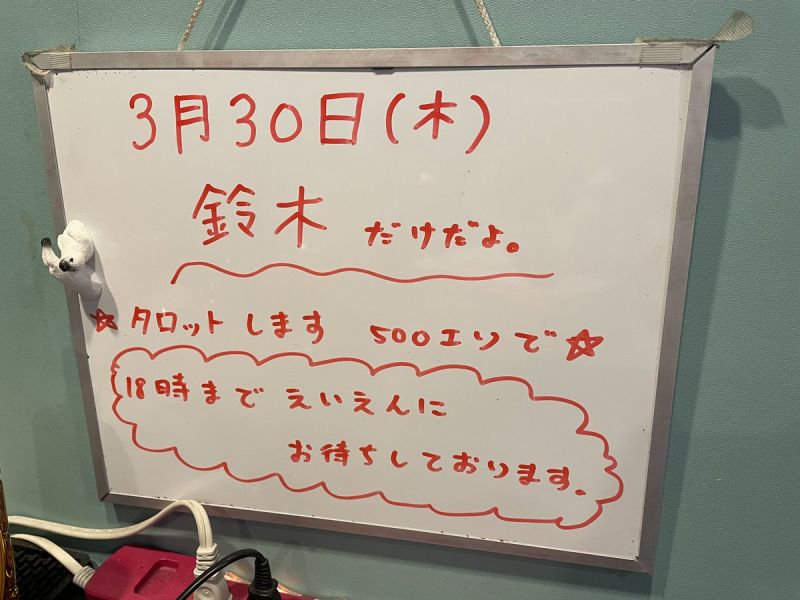 3月30日(木)
鈴木 だけだよ。
☆タロットします 500エンで☆
18時まで えいえんに
お待ちしております。